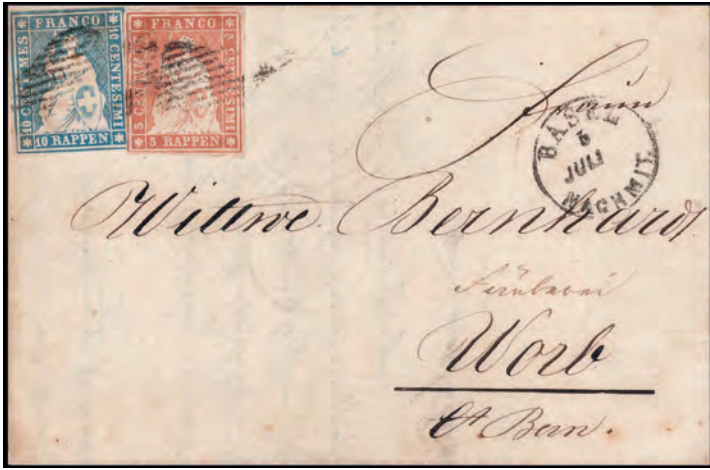 FRANCO
10 CENTIMES
10 CENTESIMI
10 RAPPEN
FRANCO
5 CENTIMES
5 CENTESIMI
5 RAPPEN
BASEL
5
JULI
NACHMIT.
Frauin
Wittwe Bernhardt
Färberei
Worb
Ct Bern.